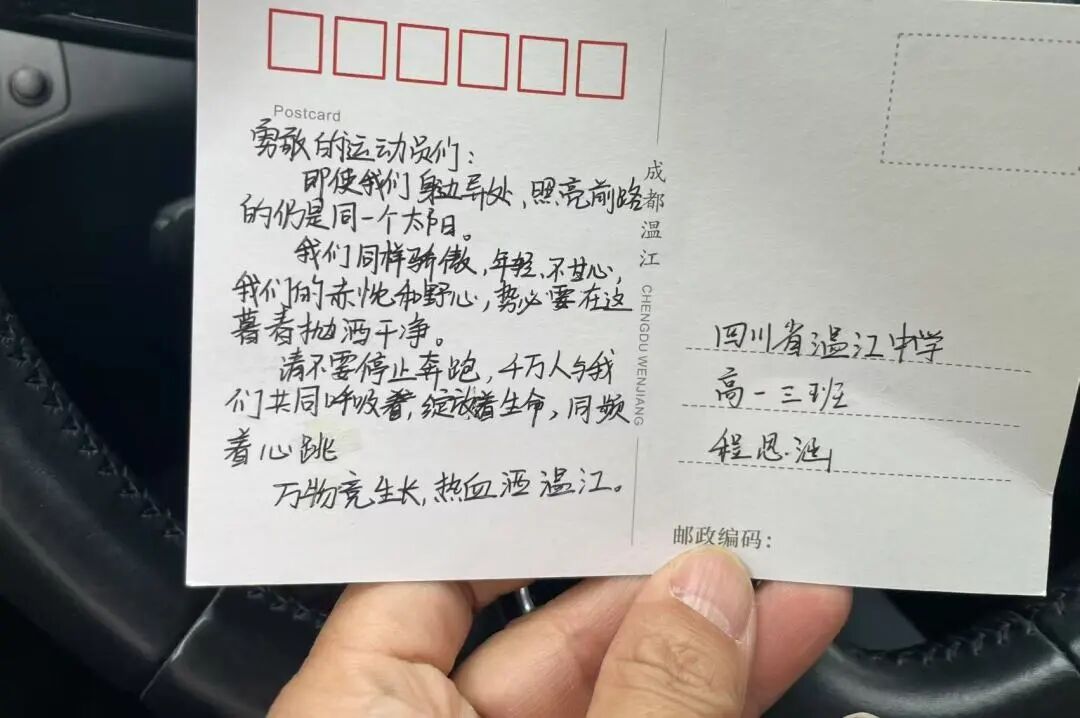 Postcard
勇敢的运动员们：
即使我们身边异处，照亮前路
的仍是同一个太阳。
我们同样骄傲，年轻，不甘心，
我们的赤忱和野心，势必要在这
暮春抛洒干净。
请不要停止奔跑，千万人与我
们共同呼吸着，绽放着生命，同频
着心跳
万物竞生长，热血洒温江。
成都温江 CHENGDU WENJIANG
四川省温江中学
高一三班
程恩涵
邮政编码：